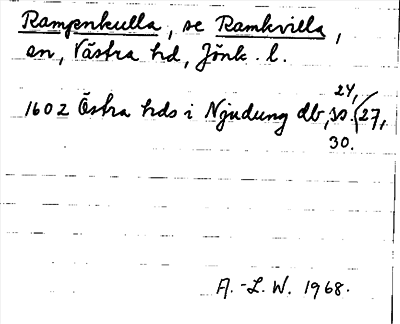 Rampnkulla, se Ramkvilla,
sn, Västra hd, Jönk. l.
24,
1602 Östra hds i Njudung db, s. 27,
30.
A.-L. W. 1968.